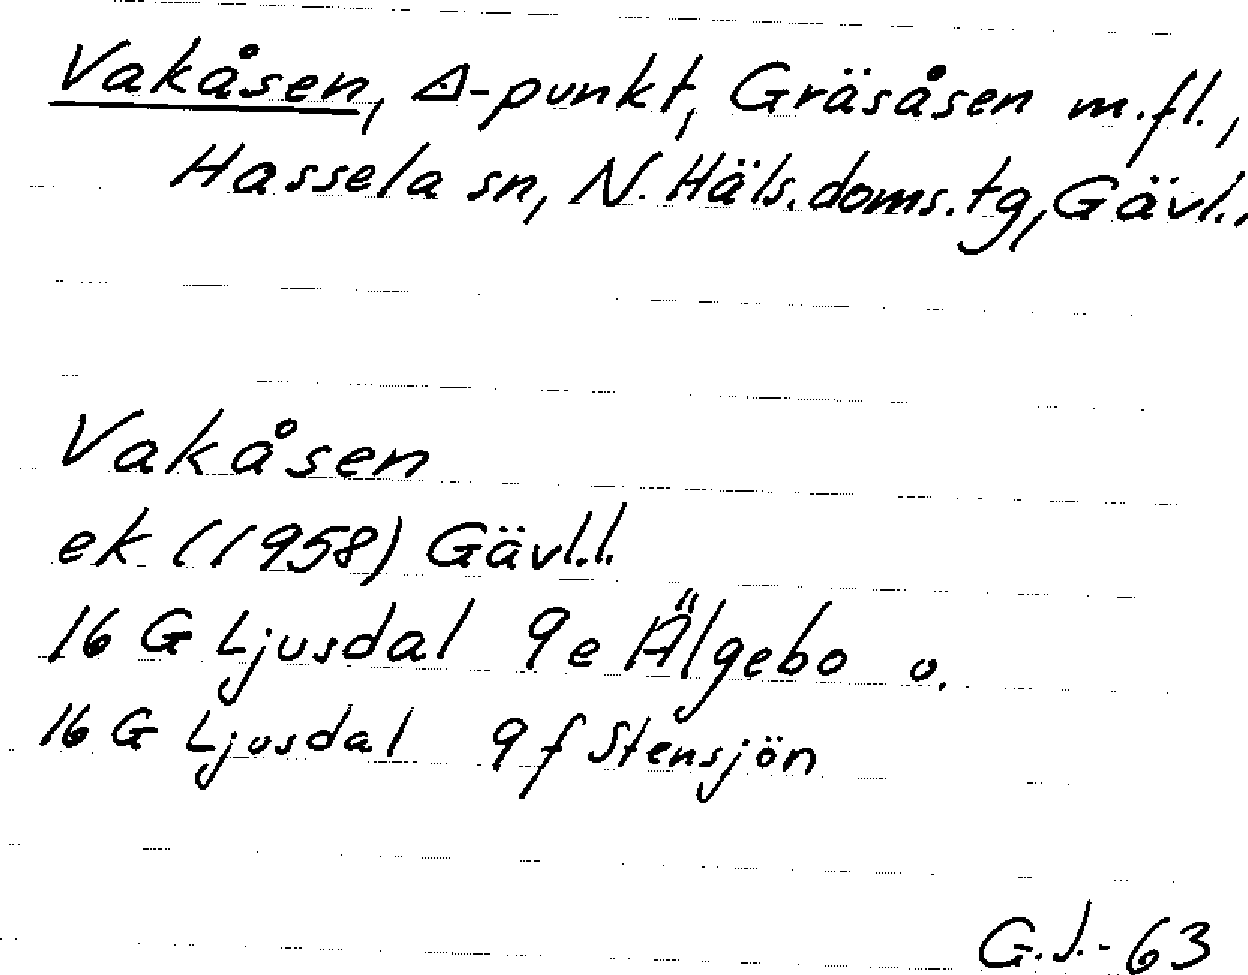 Vakåsen, Δ-punkt, Gräsåsen m.fl.,
Hassela sn, N. Häls. doms. tg, Gävl..
Vakåsen
ek (1958) Gävl.l.
16 G Ljusdal 9e Älgebo o.
16 G Ljusdal 9f Stensjön
G.J.-63